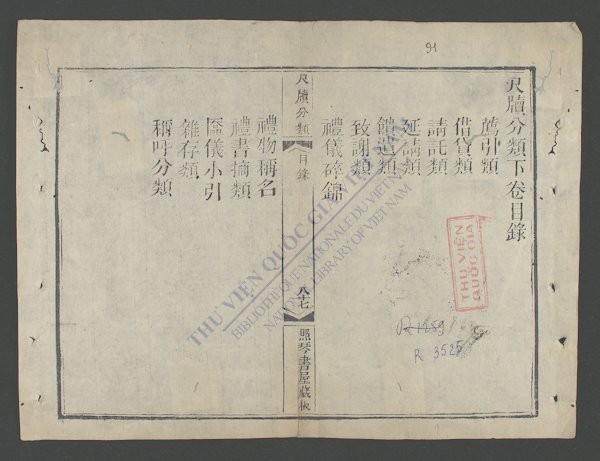 尺牘分類下卷目錄
薦引類
借貸類
請託類
延請類
饋送類
致謝類
禮儀碎錦
尺牘分類
目錄
八十七
照琴書屋藏板
禮物稱名
禮書摘類
匲儀小引
雜存類
稱呼分類
91
THƯ VIỆN
QUỐC GIA
R 3525
THƯ VIỆN QUỐC GIA VIỆT NAM
BIBLIOTHÈQUE NATIONALE DU VIETNAM
NATIONAL LIBRARY OF VIETNAM